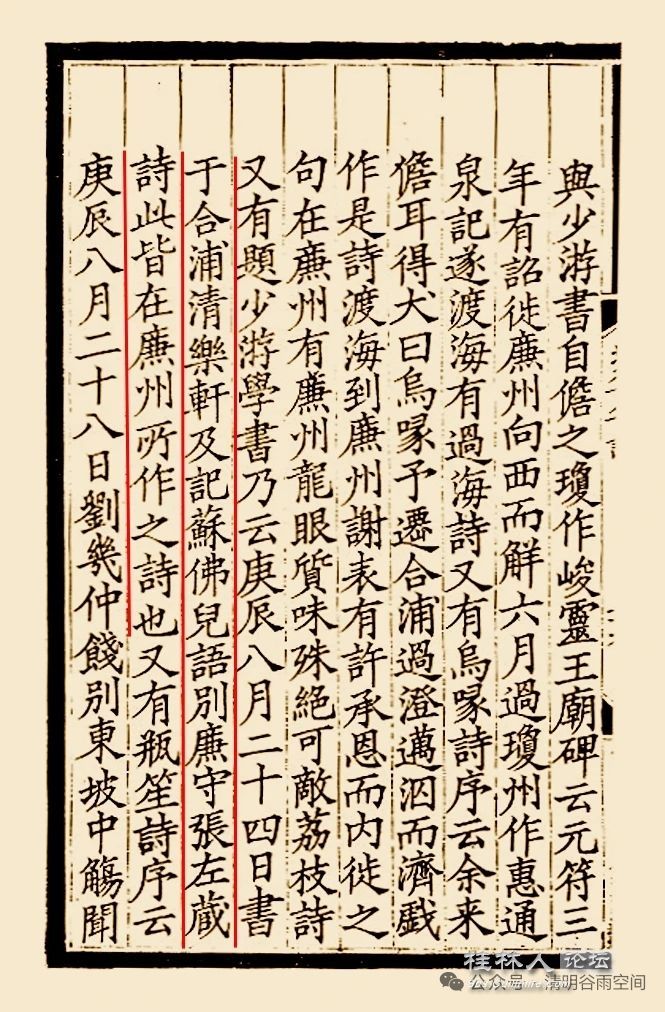 與少游書自儋之瓊作峻靈王廟碑云元符三
年有詔徙廉州向西而辭六月過瓊州作惠通
泉記遂渡海有過海詩又有烏喙詩序云余来
儋耳得犬曰烏喙予遷合浦過澄邁泅而濟戲
作是詩渡海到廉州謝表有許承恩而内徙之
句在廉州有廉州龍眼質味殊絶可敵荔枝詩
又有題少游學書乃云庚辰八月二十四日書
于合浦清樂軒及記蘇佛兒語别廉守張左藏
詩此皆在廉州所作之詩也又有瓶笙詩序云
庚辰八月二十八日劉幾仲餞别東坡中觴聞
桂林人论坛
公众号 · 清明谷雨空间